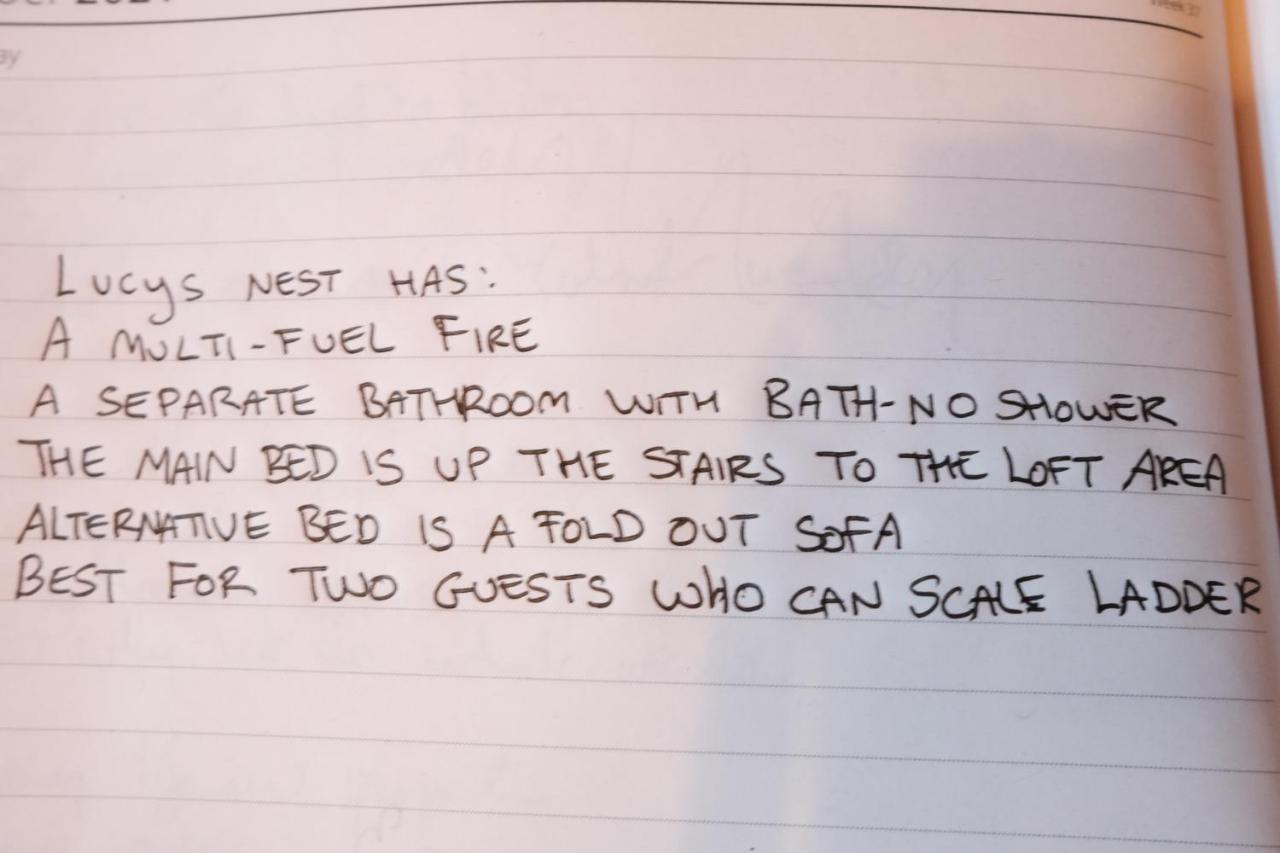 2021
Week 37
LUCYS NEST HAS:
A MULTI-FUEL FIRE
A SEPARATE BATHROOM WITH BATH-NO SHOWER
THE MAIN BED IS UP THE STAIRS TO THE LOFT AREA
ALTERNATIVE BED IS A FOLD OUT SOFA
BEST FOR TWO GUESTS WHO CAN SCALE LADDER